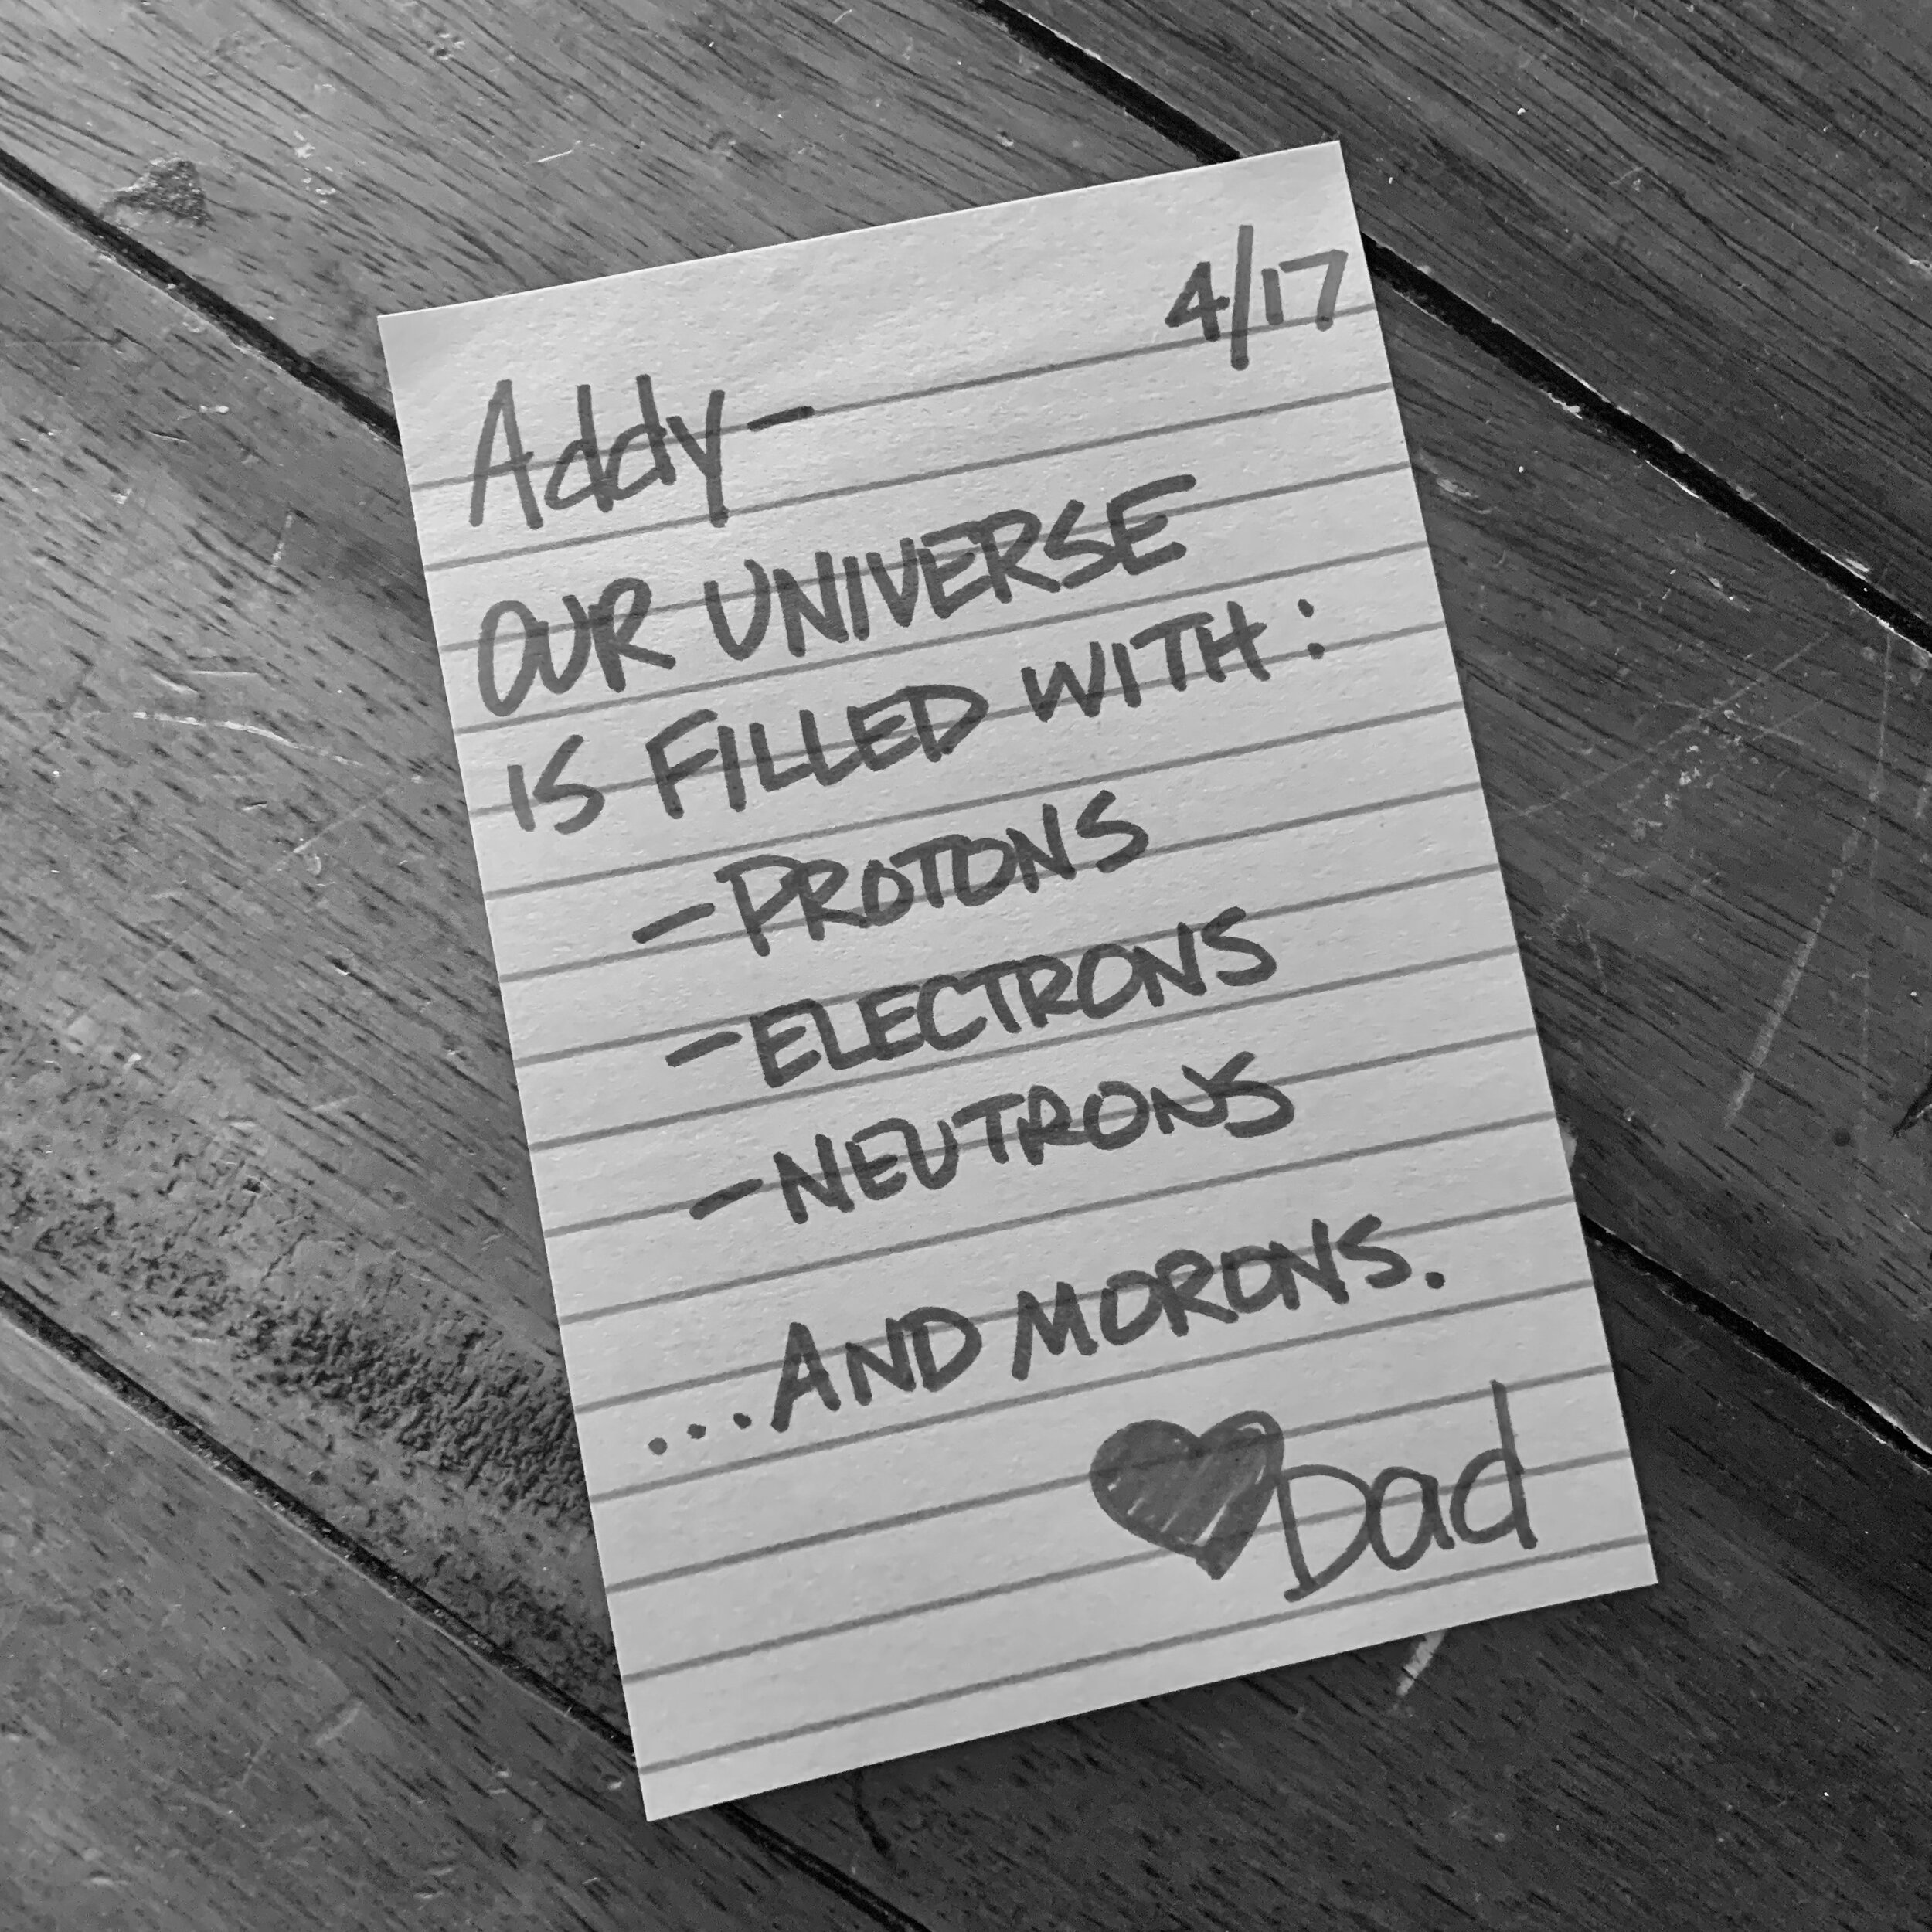 4/17
Addy-
OUR UNIVERSE
IS FILLED WITH:
-PROTONS
-ELECTRONS
-NEUTRONS
...AND MORONS.
♥Dad